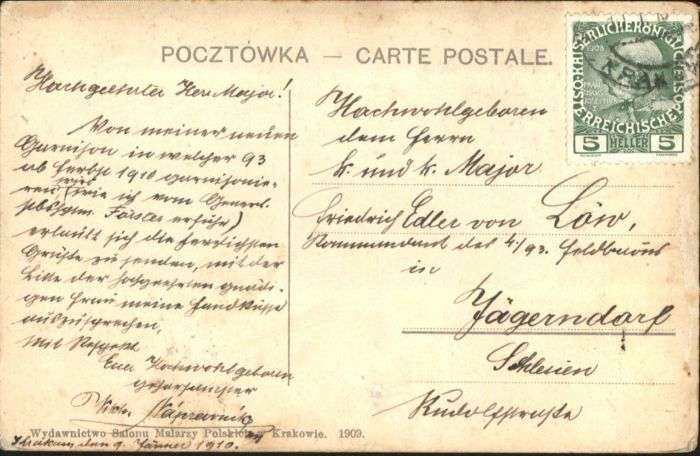 POCZTÓWKA — CARTE POSTALE.
Hochgeehrter Herr Major!
Von meiner neuen
Garnison in welcher 93
ab Herbst 1910 garnisonie-
ren wird (wie ich vom General-
erfuhr)
erlaubt sich die herzlichsten
Grüße zu senden, mit der
Bitte der hochgeehrten gnädi-
gen Frau meine Handküsse
auszusprechen,
Mit Respekt
Euer Hochwohlgeboren
gehorsamster
Krakau, den 9. Jänner 1910.
Wydawnictwo Salonu Malarzy Polskich w Krakowie. 1909.
Hochwohlgeboren
dem Herrn
k. und k. Major
Friedrich Edler von Löw,
Kommandant des 4/93. Feldbaons
in
Jägerndorf
Schlesien
Rudolfstraße
KAISERLICHE KÖNIGLICHE
ÖSTERREICHISCHE POST
1908
5 HELLER 5
KRAK